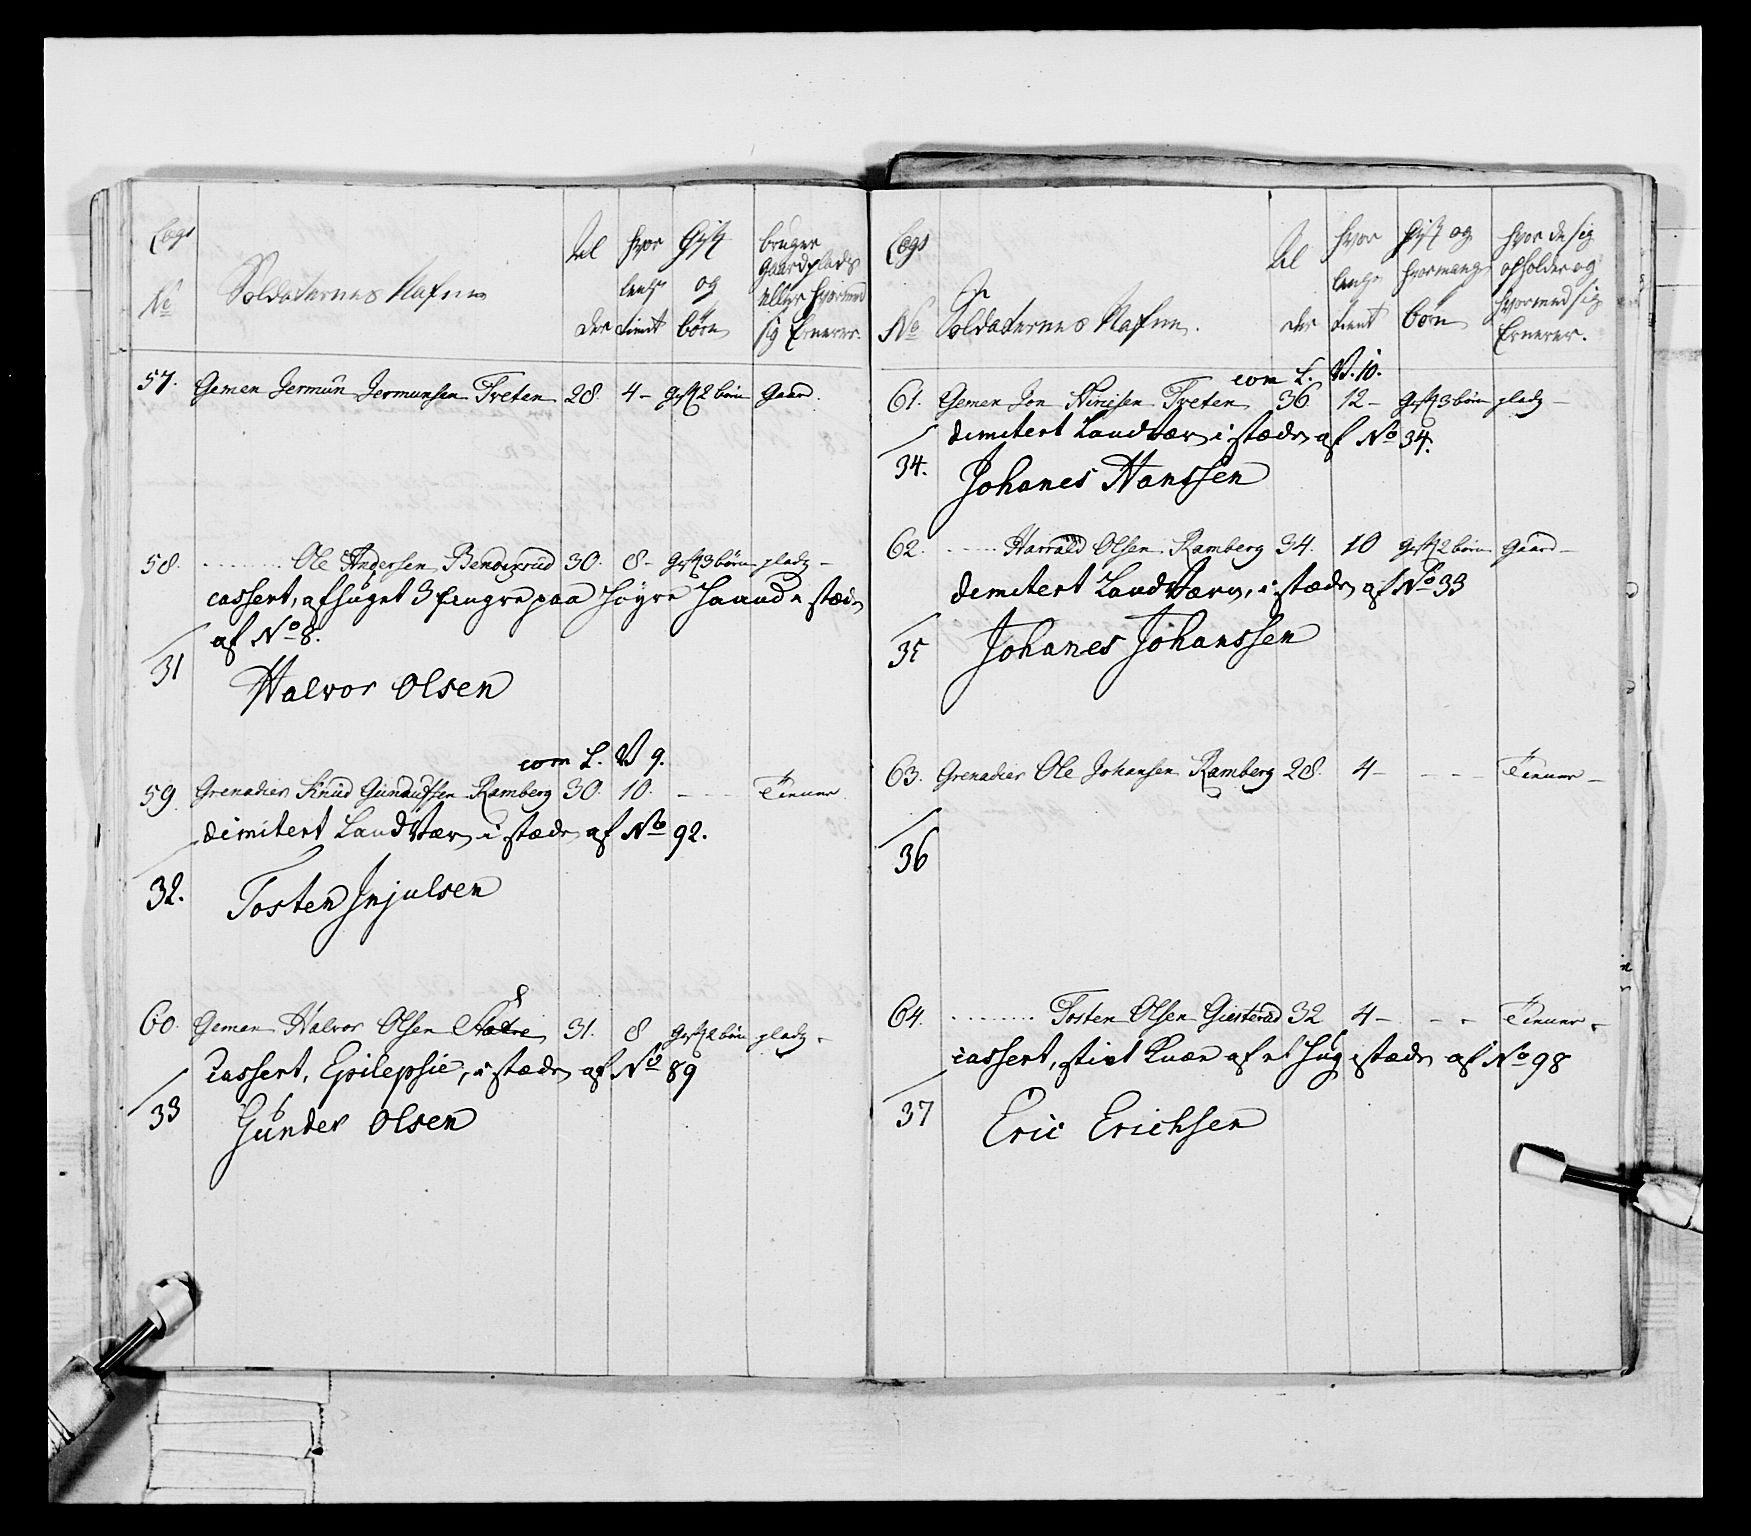 Legs
No
Soldaternes Nafne
Al
der
hvor
lenge
tient
Gift
og
børn
bruger
gaard plads
eller hvormed
sig Ernerer.
57. Gemen Jermun Jermunsen Treten 28 4 - gift 2 børn Gaard.
58. Ole Andersen Bendixrud 30. 8 - gift 3 børn plads -
cassert, afhuget 3 fingre paa høyre haand i stæden
af No 8.
31 Halvor Olsen
com L. V 9.
59. Grenadier Knud Gundufsen Ramberg 30. 10. - Tiener
dimitert Land Værn i stæden af No 92.
32. Tosten Injulsen
60. Gemen Halvor Olsen 31. 8 gift 2 børn plads -
Cassert, Epilepsie, i stæden af No 89
33 Gunder Olsen
Legs
No
Soldaternes Nafne.
Al
der
hvor
lenge
tient
Gift og
hvormange
børn
hvor de sig
opholder og
hvormed sig
Ernerer.
com L. V. 10.
61. Gemen Jon Treten 36 12 - gift 3 børn plads -
dimitert Landværn i stæden af No 34.
34. Johanes Hanssen
62. Harrald Olsen Ramberg 34. 10 gift 2 børn Gaard -
dimitert Land Værn, i stæden af No 33
35 Johanes Johanssen
63. Grenadier Ole Johansen Ramberg 28. 4 - - - - Tiener -
36
64. Tosten Olsen Giesterud 32 4 - - - Tiener -
cassert, stivt Knæe af et hug i stæden af No 98
37 Eric Erichsen